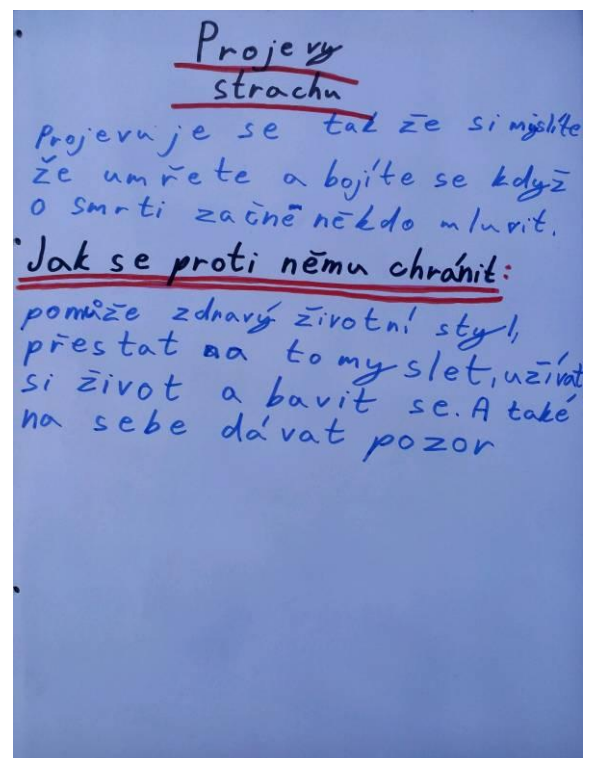 Projevy
strachu
Projevuje se tak že si myslíte
že umřete a bojíte se když
o smrti začne někdo mluvit.
Jak se proti němu chránit:
pomůže zdravý životní styl,
přestat na to myslet, užívat
si život a bavit se. A také
na sebe dávat pozor